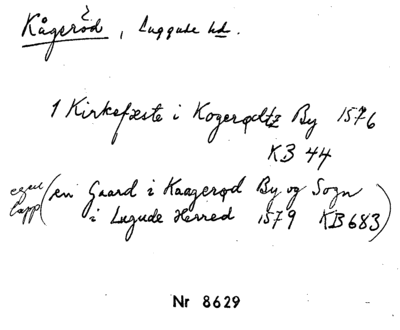 Kågeröd, Luggude hd.
1 Kirkefæste i Kogerødtz By 1576
KB 44
(en Gaard i Kaagerød By og Sogn
i Lugude Herred 1579 KB 683)
Nr 8629